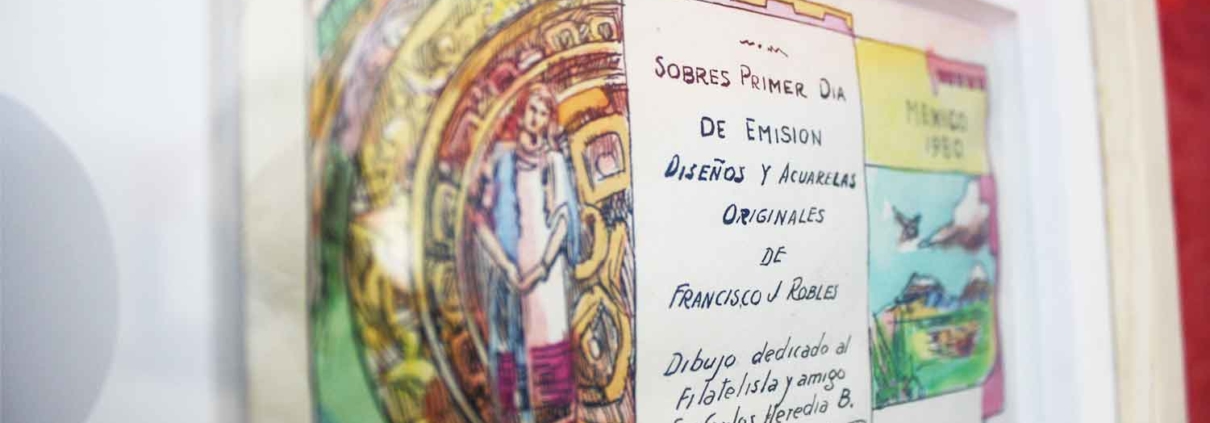 SOBRES PRIMER DIA
DE EMISION
DISEÑOS Y ACUARELAS
ORIGINALES
DE
FRANCISCO J ROBLES
Dibujo dedicado al
Filatelista y amigo
Carlos Heredia B.
MEXICO
1980